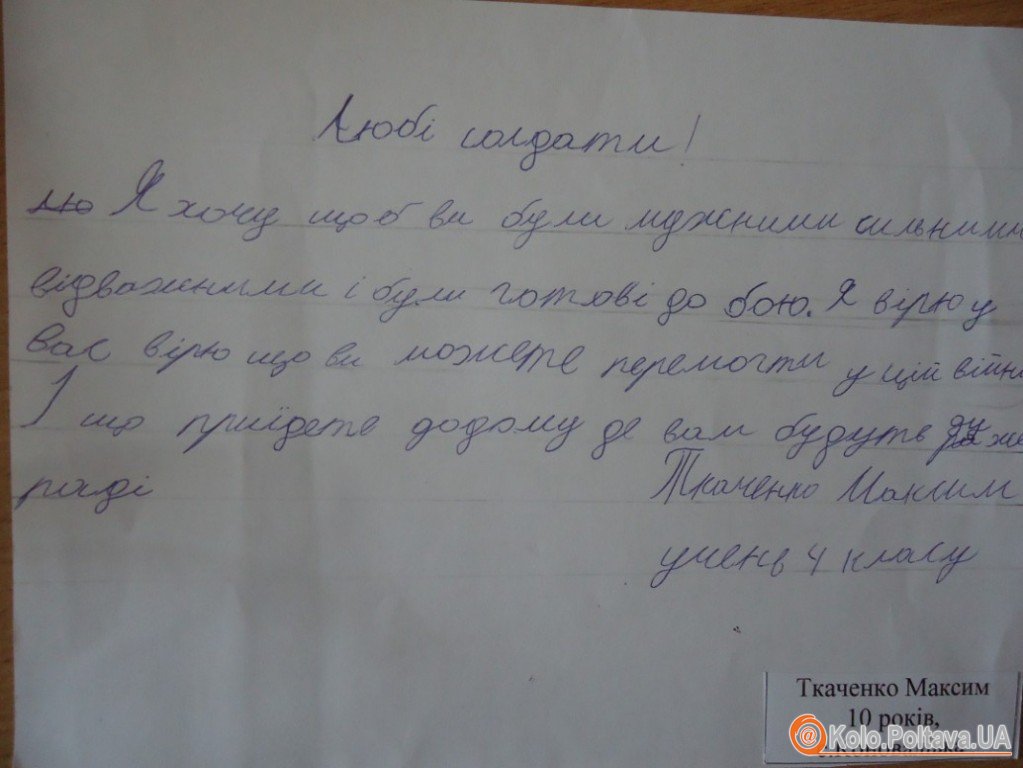 Любі солдати!
лю Я хочу щоб ви були мужними сильними
відважними і були готові до бою. Я вірю у
вас вірю що ви можете перемогти у цій війні
І що прийдете додому де вам будуть дуже
раді
Ткаченко Максим
учень 4 класу
Ткаченко Максим
10 років,
@Kolo.Poltava.UA